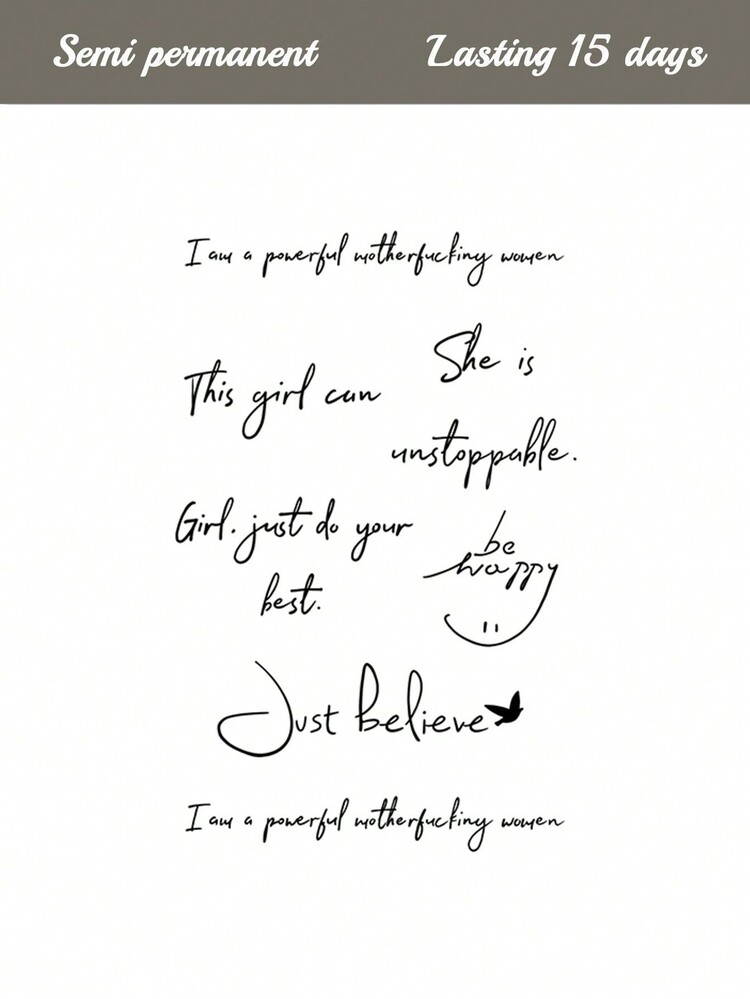 Semi permanent
Lasting 15 days
I am a powerful motherfucking women
This girl can
She is
unstoppable.
Girl. just do your
best.
be
happy
Just believe
I am a powerful motherfucking women